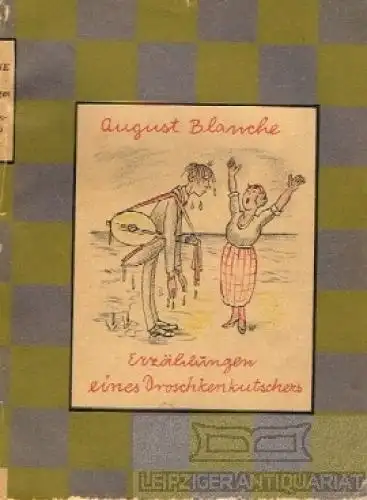 August Blanche
Erzählungen
eines Droschkenkutschers
LEIPZIGER ANTIQUARIAT